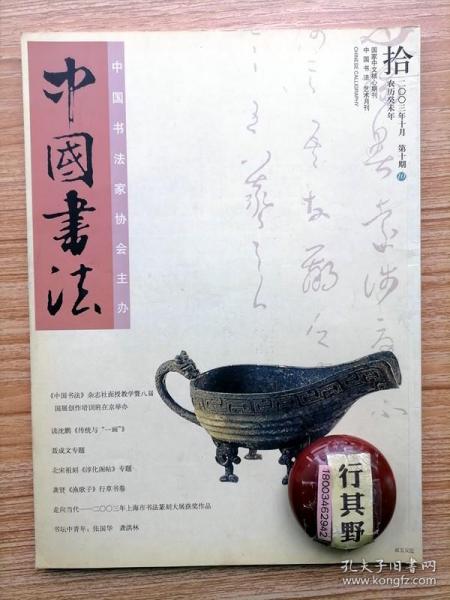 中國書法
中国书法家协会主办
国家中文核心期刊
中国书法/艺术月刊
CHINESE CALLIGRAPHY
拾
二〇〇三年十月 第十期 10
农历癸未年
《中国书法》杂志社面授教学暨八届
国展创作培训班在京举办
读沈鹏《传统与“一画”》
聂成文专题
北宋祖刻《淳化阁帖》专题
龚贤《渔歌子》行草书卷
走向当代——二〇〇三年上海市书法篆刻大展获奖作品
书坛中青年：张国华 龚洪林
行其野
18003462942
孔夫子旧书网
www.kongfz.com